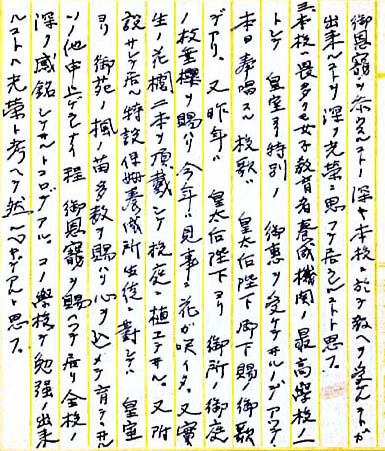 御恩寵ヲ忝ウスルコトノ深キ本校ニ於テ教ヘヲ受ケルコトガ
出来ルコトヲ深ク光栄ニ思フテ居ルコトト思フ。
本校ハ畏多クモ女子教育者養成機関ノ最高学校ノ一
トシテ 皇室ノ特別ノ 御恵ヲ受ケテヰルノデアツテ、
本日奉唱スル校歌ハ 皇太后陛下御下賜ノ御歌
デアリ、又昨年ハ 皇太后陛下ヨリ 御所ノ御庭
ノ枝垂櫻ヲ賜ハリ今年ハ見事ニ花ガ咲イタ。又實
生ノ花櫚二本ヲ頂戴シテ校庭ニ植エテヰル。又附
設サレテ居ル特設保姆養成所生徒ニ對シテ、 皇室
ヨリ 御苑ノ楓ノ苗多数ヲ賜ハリ心ヲ込メテ育テヰル
ソノ他申上ゲテナイ程 御恩寵ヲ賜ハツテ居リ全校ノ
深ク感銘シテヰルトコロデアル。コノ學校デ勉強ノ出来
ルコトハ光榮ト考ヘテ然ルベキデアルト思フ。